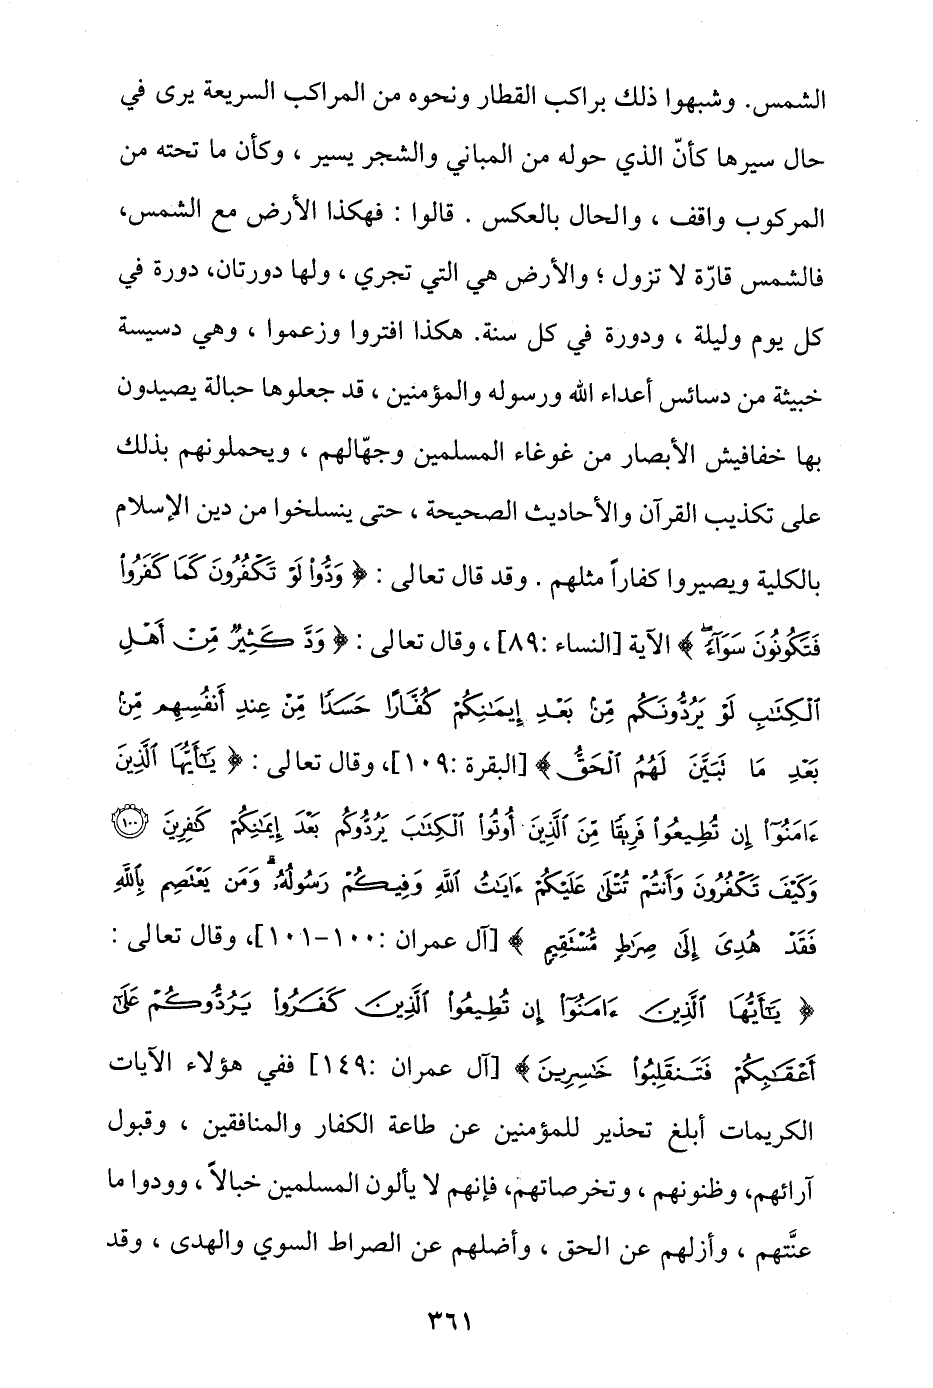 الشمس. وشبهوا ذلك براكب القطار ونحوه من المراكب السريعة يرى في
حال سيرها كأنّ الذي حوله من المباني والشجر يسير ، وكأن ما تحته من
المركوب واقف ، والحال بالعكس . قالوا : فهكذا الأرض مع الشمس،
فالشمس قارّة لا تزول ؛ والأرض هي التي تجري ، ولها دورتان، دورة في
كل يوم وليلة ، ودورة في كل سنة. هكذا افتروا وزعموا ، وهي دسيسة
خبيثة من دسائس أعداء الله ورسوله والمؤمنين ، قد جعلوها حبالة يصيدون
بها خفافيش الأبصار من غوغاء المسلمين وجهّالهم ، ويحملونهم بذلك
على تكذيب القرآن والأحاديث الصحيحة ، حتى ينسلخوا من دين الإسلام
بالكلية ويصيروا كفاراً مثلهم . وقد قال تعالى : ﴿ وَدُّوا۟ لَوْ تَكْفُرُونَ كَمَا كَفَرُوا۟
فَتَكُونُونَ سَوَآءً ۖ ﴾ الآية [النساء :٨٩] ، وقال تعالى : ﴿ وَدَّ كَثِيرٌ مِّنْ أَهْلِ
ٱلْكِتَٰبِ لَوْ يَرُدُّونَكُم مِّنۢ بَعْدِ إِيمَٰنِكُمْ كُفَّارًا حَسَدًا مِّنْ عِندِ أَنفُسِهِم مِّنۢ
بَعْدِ مَا تَبَيَّنَ لَهُمُ ٱلْحَقُّ ﴾ [البقرة :١٠٩]، وقال تعالى : ﴿ يَٰٓأَيُّهَا ٱلَّذِينَ
ءَامَنُوٓا۟ إِن تُطِيعُوا۟ فَرِيقًا مِّنَ ٱلَّذِينَ أُوتُوا۟ ٱلْكِتَٰبَ يَرُدُّوكُم بَعْدَ إِيمَٰنِكُمْ كَٰفِرِينَ ١٠٠
وَكَيْفَ تَكْفُرُونَ وَأَنتُمْ تُتْلَىٰ عَلَيْكُمْ ءَايَٰتُ ٱللَّهِ وَفِيكُمْ رَسُولُهُۥ ۗ وَمَن يَعْتَصِم بِٱللَّهِ
فَقَدْ هُدِىَ إِلَىٰ صِرَٰطٍ مُّسْتَقِيمٍ ﴾ [آل عمران :١٠٠-١٠١]، وقال تعالى :
﴿ يَٰٓأَيُّهَا ٱلَّذِينَ ءَامَنُوٓا۟ إِن تُطِيعُوا۟ ٱلَّذِينَ كَفَرُوا۟ يَرُدُّوكُمْ عَلَىٰٓ
أَعْقَٰبِكُمْ فَتَنقَلِبُوا۟ خَٰسِرِينَ ﴾ [آل عمران :١٤٩] ففي هؤلاء الآيات
الكريمات أبلغ تحذير للمؤمنين عن طاعة الكفار والمنافقين ، وقبول
آرائهم، وظنونهم ، وتخرصاتهم، فإنهم لا يألون المسلمين خبالاً ، وودوا ما
عنَّتهم ، وأزلهم عن الحق ، وأضلهم عن الصراط السوي والهدى ، وقد
٣٦١